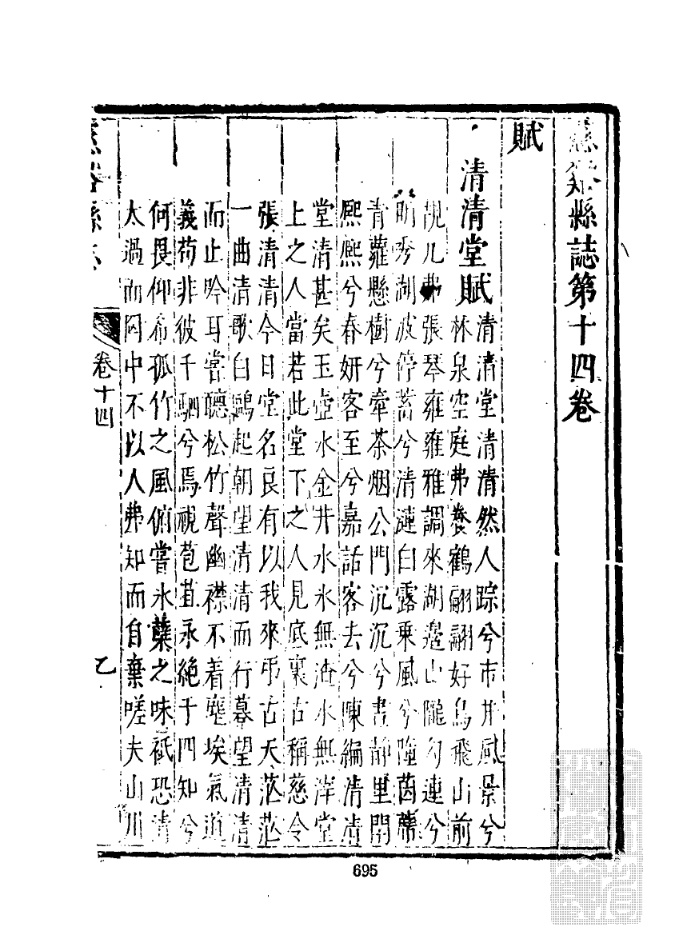 慈谿縣誌第十四卷
賦
清清堂賦
清清堂清清然人踪兮市井風景兮
林泉空庭弗養鶴翩翩好鳥飛山前
几弗張琴雍雍雅調來湖邊山隴勾連兮
明秀湖波停蓄兮清漣白露乘風兮隨茵
青蘿懸樹兮牽茶烟公門沉沉兮晝靜里閈
熙熙兮春妍客至兮嘉話客去兮陳編清清
堂清甚矣玉壺水金井水水無渣水無滓堂
上之人當若此堂下之人見底裏古稱慈令
張清清今日堂名良有以我來弔古天茫茫
一曲清歌白鷗起朝望清清而行暮望清清
而止吟耳嘗聽松竹聲幽襟不着塵埃氣道
義苟非彼千駟兮焉視苞苴永絕于四知兮
何畏仰希孤竹之風俯嘗氷蘗之味祇恐清
太過而罔中不以人弗知而自棄嗟夫山川
慈谿縣志
卷十四
乙
695